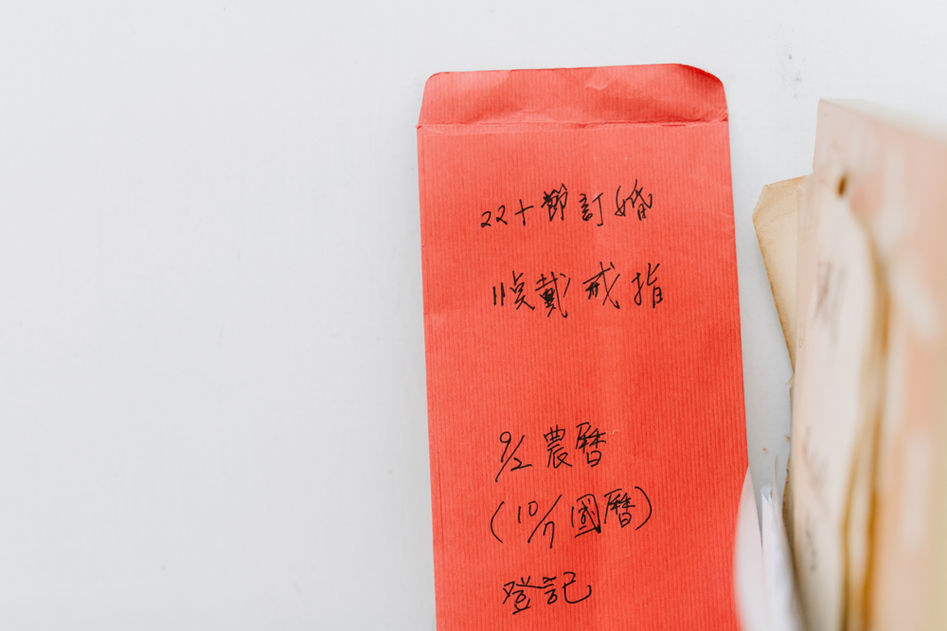 双十節訂婚
11奌戴戒指
9/2農曆
(10/7國曆)
登記